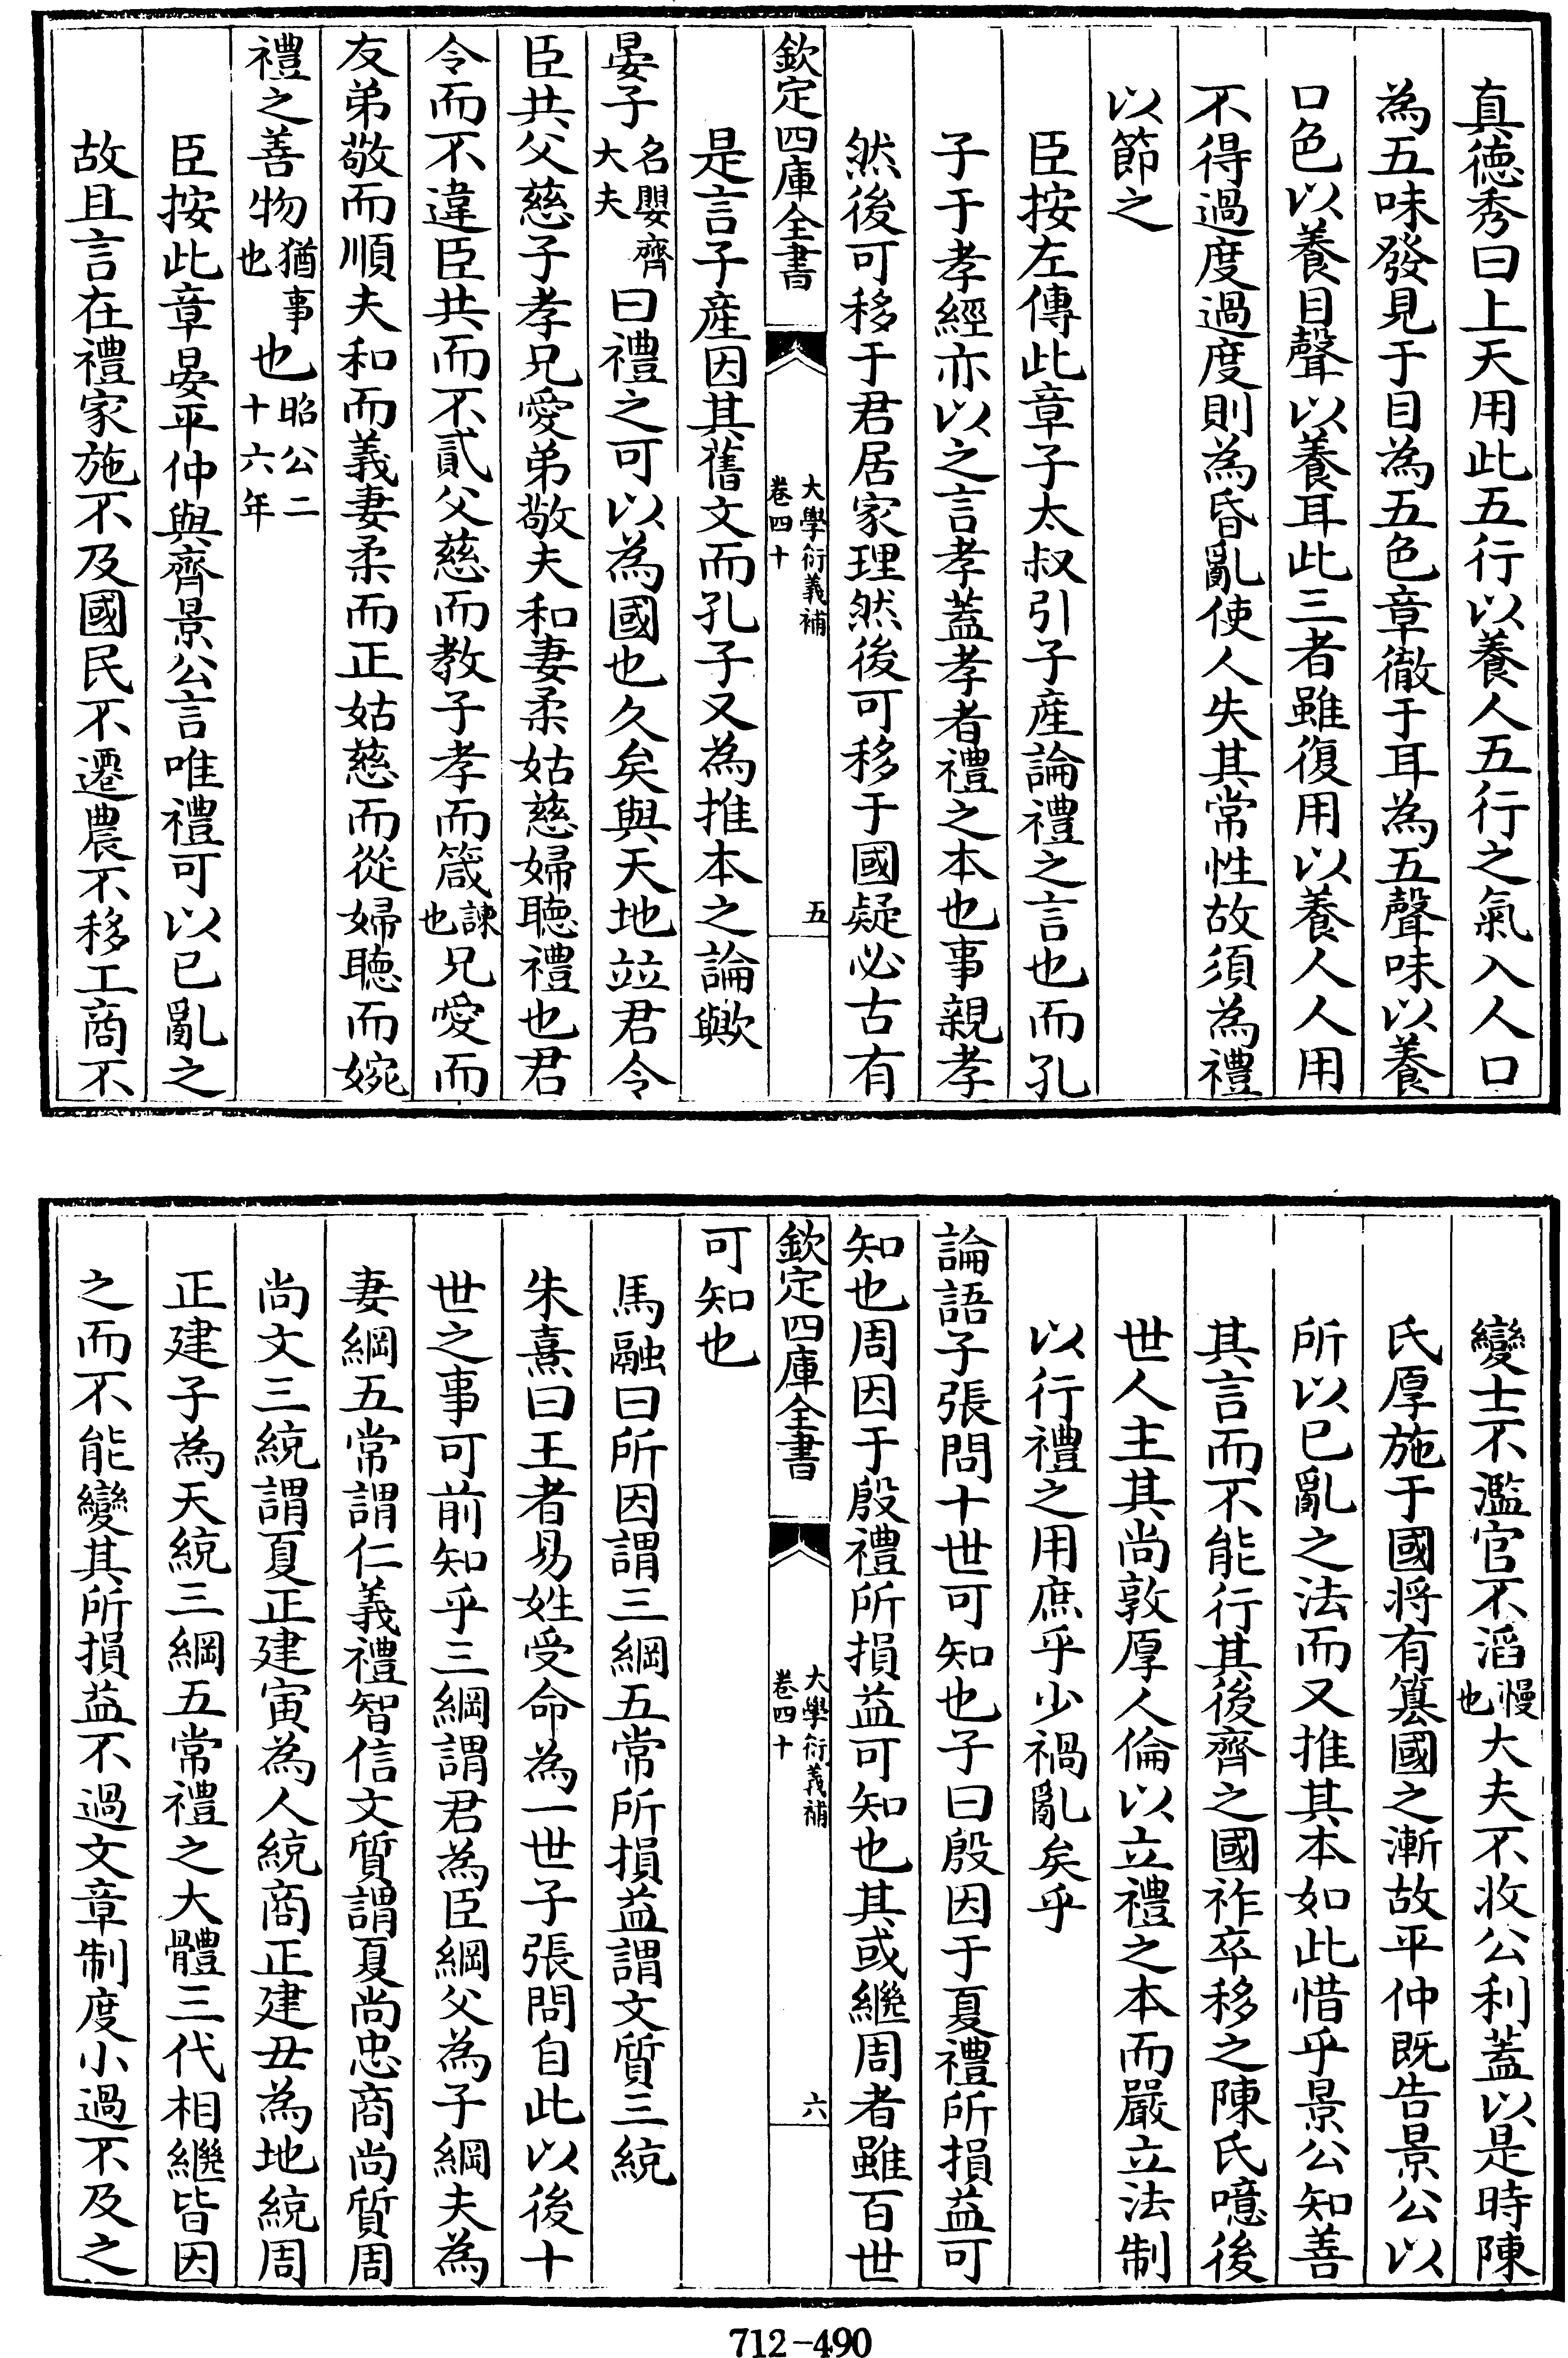 真徳秀曰上天用此五行以養人五行之氣入人口
為五味發見于目為五色章徹于耳為五聲味以養
口色以養目聲以養耳此三者雖復用以養人人用
不得過度過度則為昏亂使人失其常性故須為禮
以節之
臣按左傳此章子太叔引子産論禮之言也而孔
子于孝經亦以之言孝蓋孝者禮之本也事親孝
然後可移于君居家理然後可移于國疑必古有
欽定四庫全書
大學衍義補
卷四十
五
是言子産因其舊文而孔子又為推本之論歟
晏子名嬰齊大夫曰禮之可以為國也久矣與天地竝君令
臣共父慈子孝兄愛弟敬夫和妻柔姑慈婦聽禮也君
令而不違臣共而不貳父慈而教子孝而箴諫也兄愛而
友弟敬而順夫和而義妻柔而正姑慈而從婦聽而婉
禮之善物猶事也也昭公二十六年
臣按此章晏平仲與齊景公言唯禮可以已亂之
故且言在禮家施不及國民不遷農不移工商不
變士不濫官不滔慢也大夫不收公利蓋以是時陳
氏厚施于國将有簒國之漸故平仲既告景公以
所以已亂之法而又推其本如此惜乎景公知善
其言而不能行其後齊之國祚卒移之陳氏噫後
世人主其尚敦厚人倫以立禮之本而嚴立法制
以行禮之用庶乎少禍亂矣乎
論語子張問十世可知也子曰殷因于夏禮所損益可
知也周因于殷禮所損益可知也其或繼周者雖百世
欽定四庫全書
大學衍義補
卷四十
六
可知也
馬融曰所因謂三綱五常所損益謂文質三統
朱熹曰王者易姓受命為一世子張問自此以後十
世之事可前知乎三綱謂君為臣綱父為子綱夫為
妻綱五常謂仁義禮智信文質謂夏尚忠商尚質周
尚文三統謂夏正建寅為人統商正建丑為地統周
正建子為天統三綱五常禮之大體三代相繼皆因
之而不能變其所損益不過文章制度小過不及之
712-490